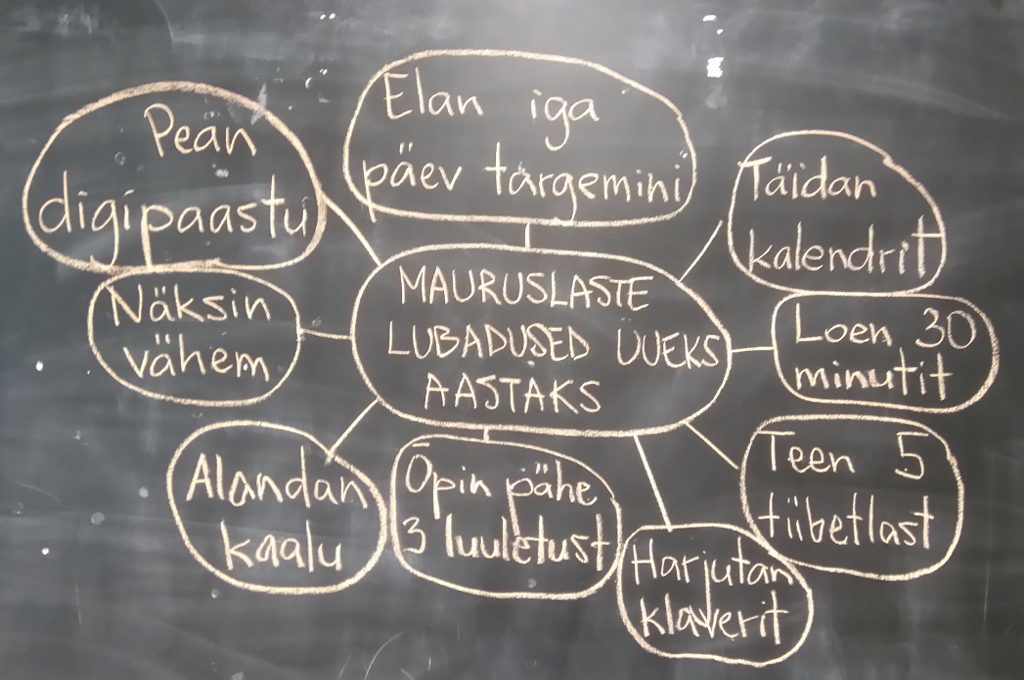 Elan iga
päev targemini
Pean
digipaastu
Täidan
kalendrit
MAURUSLASTE
LUBADUSED UUEKS
AASTAKS
Näksin
vähem
Loen 30
minutit
Alandan
kaalu
Õpin pähe
3 luuletust
Teen 5
tiibetlast
Harjutan
klaverit